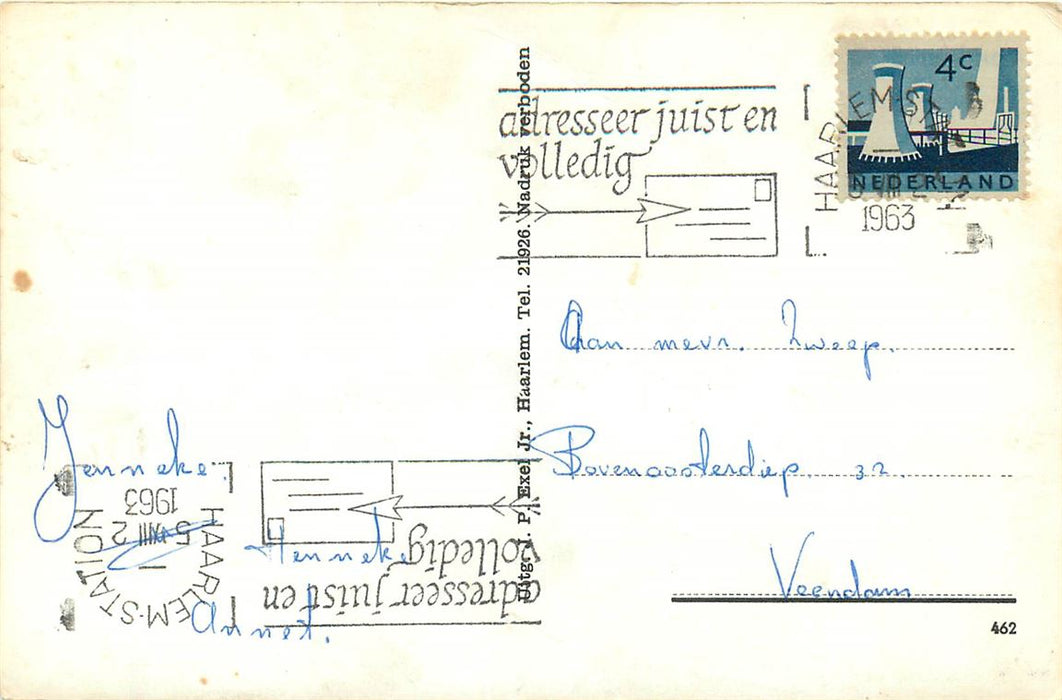 4c
NEDERLAND
adresseer juist en
volledig
HAARLEM-STATION
1963
Uitg. J. P. Exel Jr., Haarlem. Tel. 21926. Nadruk verboden
Aan mevr. Zweep.
Bovenoosterdiep. 32.
Veendam
462
Jenneke.
Henneke
Annet.
adresseer juist en
volledig
HAARLEM-STATION
5 VIII 2
1963